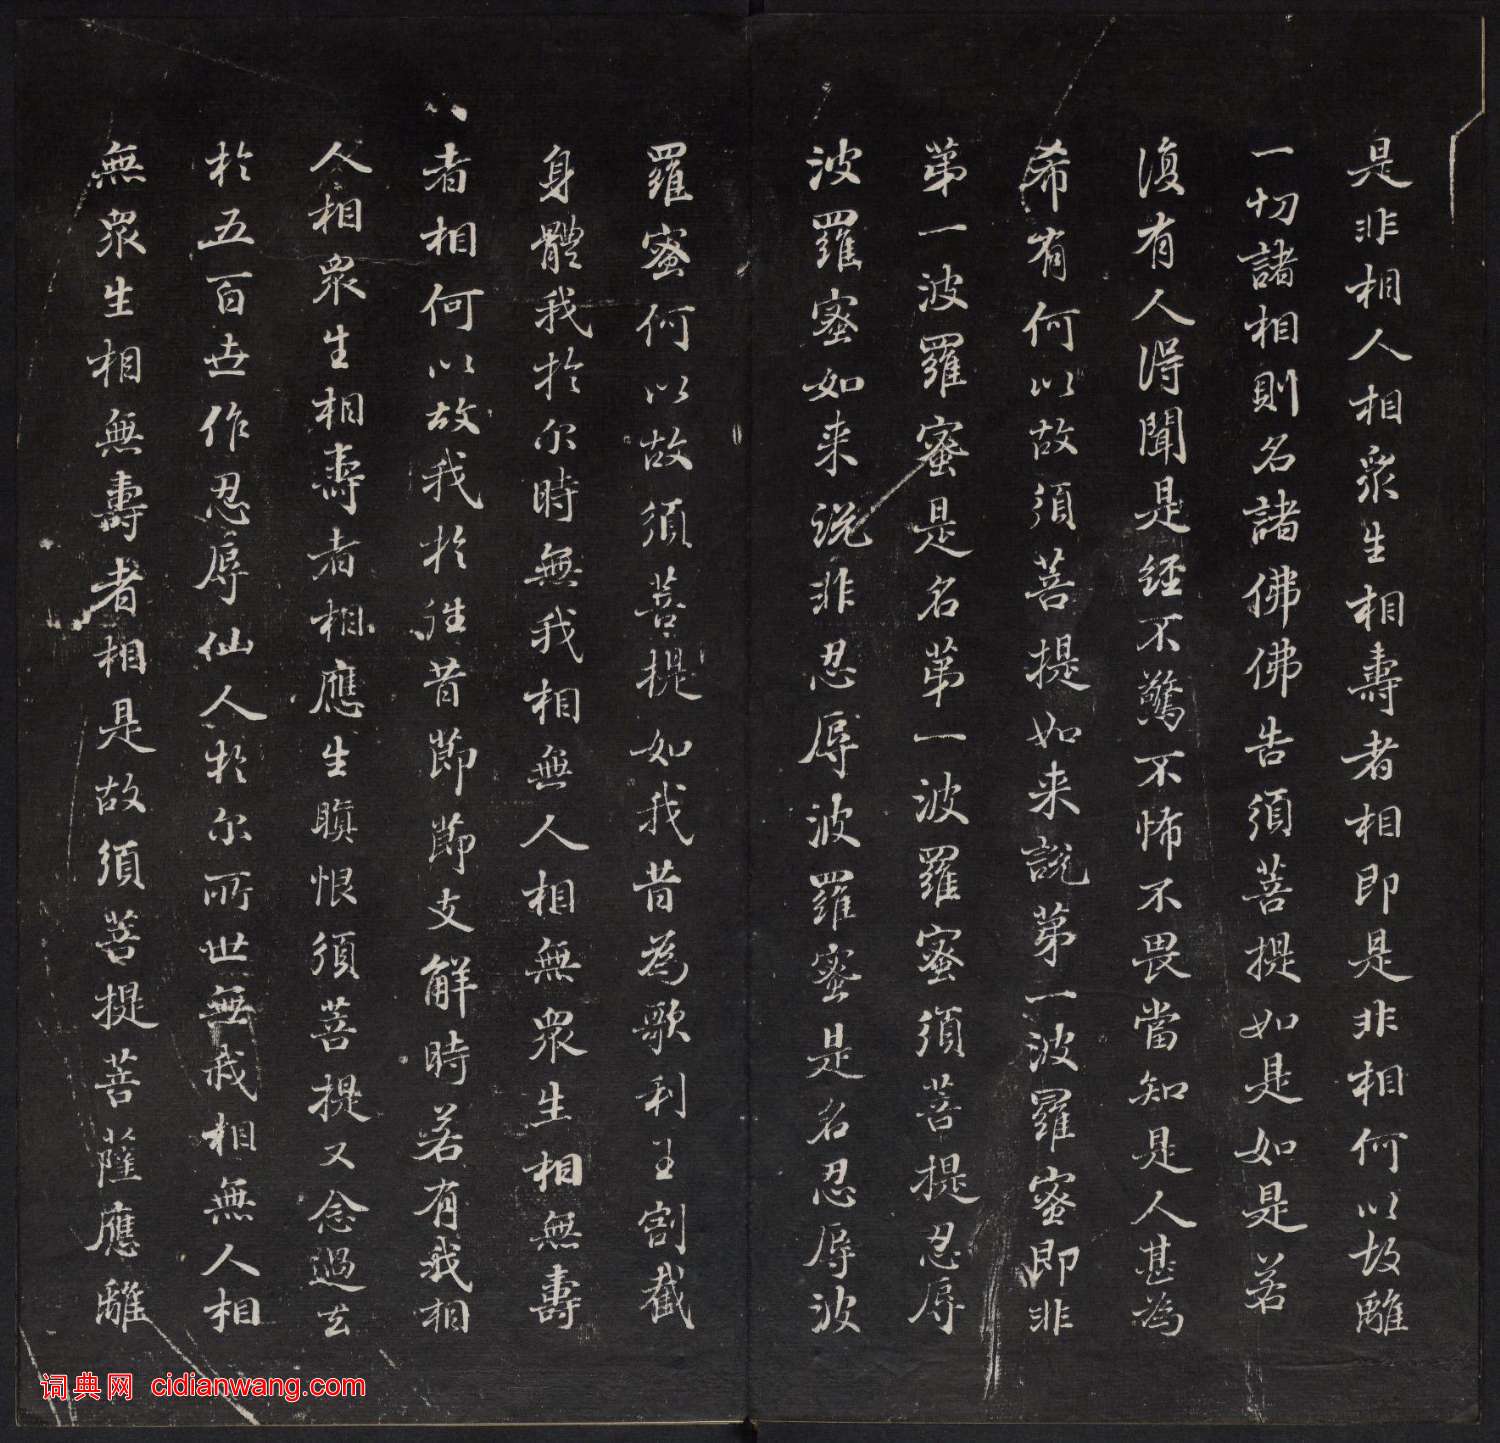 是非相人相眾生相壽者相即是非相何以故離
一切諸相則名諸佛佛告須菩提如是如是若
復有人得聞是經不驚不怖不畏當知是人甚為
希有何以故須菩提如来說第一波羅蜜即非
第一波羅蜜是名第一波羅蜜須菩提忍辱
波羅蜜如来说非忍辱波羅蜜是名忍辱波
羅蜜何以故須菩提如我昔為歌利王割截
身體我於尔時無我相無人相無眾生相無壽
者相何以故我於往昔節節支解時若有我相
人相眾生相壽者相應生瞋恨須菩提又念過去
於五百世作忍辱仙人於尔所世無我相無人相
無眾生相無壽者相是故須菩提菩薩應離
词典网 cidianwang.com